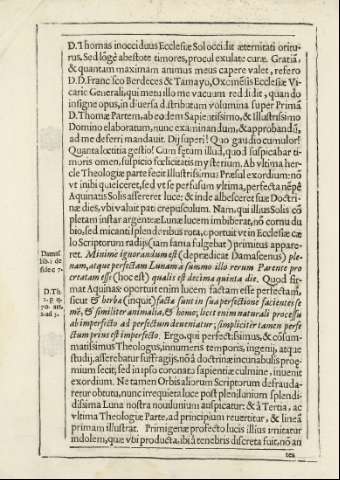 D. Thomas inocciduus Ecclesiæ Sol occidit æternitati oritu-
rus. Sed lõgè abestote timores, procul exulate curæ. Gratiã,
& quantam maximam animus meus capere valet, refero
D. D. Francisco Berdeces & Tamayo, Oxcinẽsis Ecclesiæ Vi-
cario Generali, qui metu illo me vacuum reddidit, quando
insigne opus, in diversa distributum volumina super Primã
D. Thomæ Partem, ab eodem Sapientissimo, & Illustrissimo
Domino elaboratum, nunc examinandum, & approbandũ,
ad me deferri mandavit. Dij superi! Quo gaudio cumulor!
Quanta lœtitia gestio! Cum fatum illud, quod suspicabar ti-
moris omen, suspicio fœlicitatis mysterium. Ab vltima her-
cle Theologiæ parte fecit Illustrissimus Præsul exordium: nõ
vt inibi quiesceret, sed vt se perfusum vltima, perfecta nẽpè
Aquinatis Solis assereret luce; & inde albesceret suæ Doctri-
næ dies, vbi valuit pati crepusculum. Nam, qui illius Solis cõ
pletam instar argenteæ Lunæ lucem imbiberat, nõ cornu du
bio, sed micanti splendoribus rota, oportuit vt in Ecclesiæ cæ
lo Scriptorum radijs (iam fama fulgebat) primitus appare-
ret. Minimè ignorandum est (deprædicat Damascenus) ple-
nam, atque perfectam Lunam à summo illo rerum Parente pro
creatam esse (hoc est) qualis est decima quinta die. Quod fir-
mat Aquinas: oportuit enim lucem factam esse perfectam,
sicut & herba (inquit) facta sunt in sua perfectione facientes se
mẽ, & similiter animalia, & homo; licet enim naturali processu
ab imperfecto ad perfectum deveniatur; simpliciter tamen perfe
ctum prius est imperfecto. Ergo, qui perfectissimus, & cõsum-
matissimus Theologus, innumeris temporis, ingenij, atque
studij, asserebatur suffragijs, nõ à doctrinæ incunabulis proœ-
mium fecit; sed in ipso coronato sapientiæ culmine, invenit
exordium. Ne tamen Orbis aliorum Scriptorum defrauda-
retur obtutu, nunc irrequieta luce post plenilunium splendi-
dissima Luna nostra novilunium auspicatur: & à Tertia, ac
vltima Theologiæ Parte, ad principium revertitur, & lineã
primam illustrat. Primigenæ profecto lucis illius imitatur
indolem, quæ vbi producta, ibi à tenebris discreta fuit, nõ an
tes
Damas
lib. 2. de
fide c. 7.
D. Th.
1. p. q.
70. art.
2. ad 5.